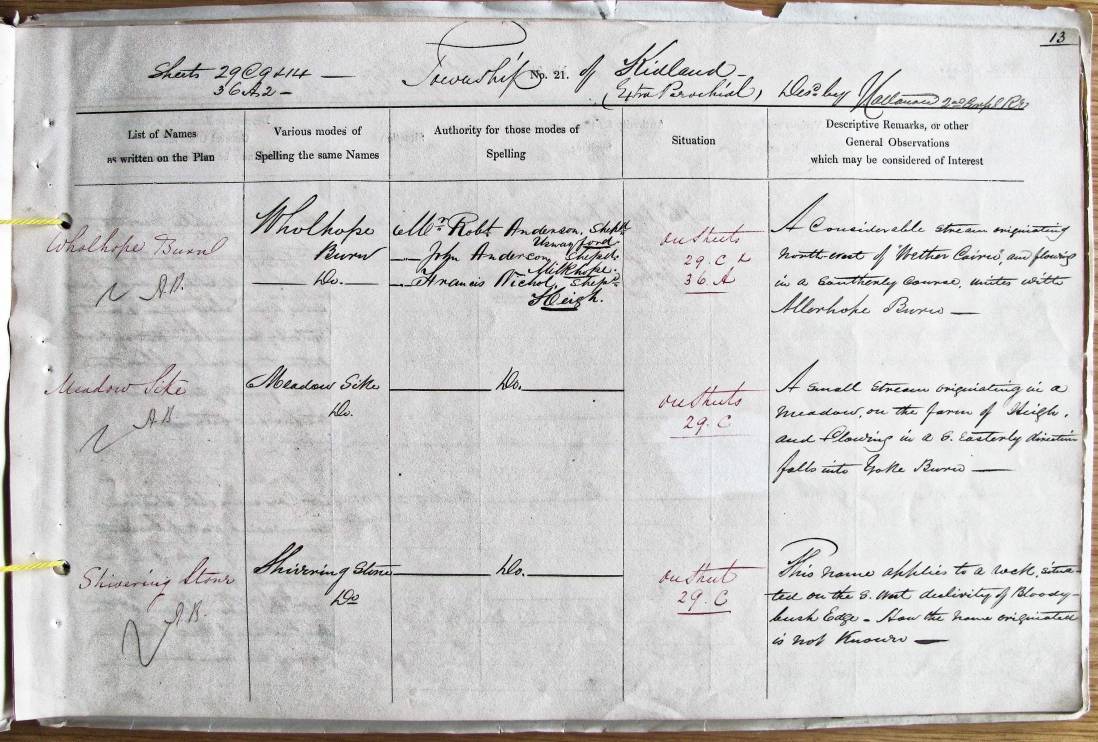 13
Sheets 29 C 9 & 14 —
36 A 2 —
Township No. 21. of Kidland —
(Extra Parochial), Desd by 2nd Corpl R.E.
List of Names
as written on the Plan
Various modes of
Spelling the same Names
Authority for those modes of
Spelling
Situation
Descriptive Remarks, or other
General Observations
which may be considered of Interest
Wholhope Burn
A.B.
Wholhope
Burn
Do.
Mr. Robt Anderson, Shepd.
Uswayford
John Anderson, Shepd.
Milkhope.
Francis Nichol, Shepd.
Heigh.
on Sheets
29. C &
36. A
A Considerable stream originating
north-east of Wether Cairn, and flowing
in a Southerly Course, unites with
Allerhope Burn —
Meadow Sike
A.B.
Meadow Sike
Do.
Do.
on Sheets
29. C
A small stream originating in a
meadow, on the farm of Heigh,
and flowing in a S. Easterly direction
falls into Yoke Burn —
Shivering Stone
A.B.
Shivering Stone
Do
Do.
on Sheet
29. C
This name applies to a rock, situa-
ted on the S. West declivity of Bloody-
bush Edge - How the name originated
is not Known —